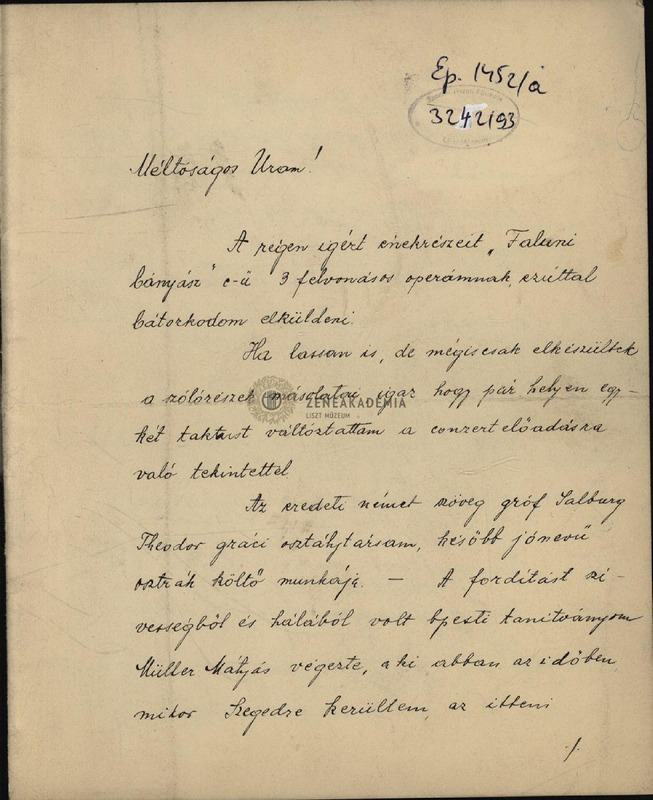 Ep. 1452/a
3242/93
Méltóságos Uram!
A régen igért énekrészeit „Faluni
bányász" c-ű 3 felvonásos operámnak, ezúttal
bátorkodom elküldeni.
Ha lassan is, de mégiscsak elkészültek
a szólórészek másolatai, igaz hogy pár helyen egy-
két taktust változtattam a conzert előadásra
való tekintettel.
Az eredeti német szöveg gróf Salburg
Theodor gráci osztálytársam, később jónevű
osztrák költő munkája. — A forditást szi-
vességből és hálából volt bpesti tanitványom
Müller Mátyás végezte, a ki abban az időben,
mikor Szegedre kerültem, az itteni
./.
ZENEAKADÉMIA
LISZT MÚZEUM